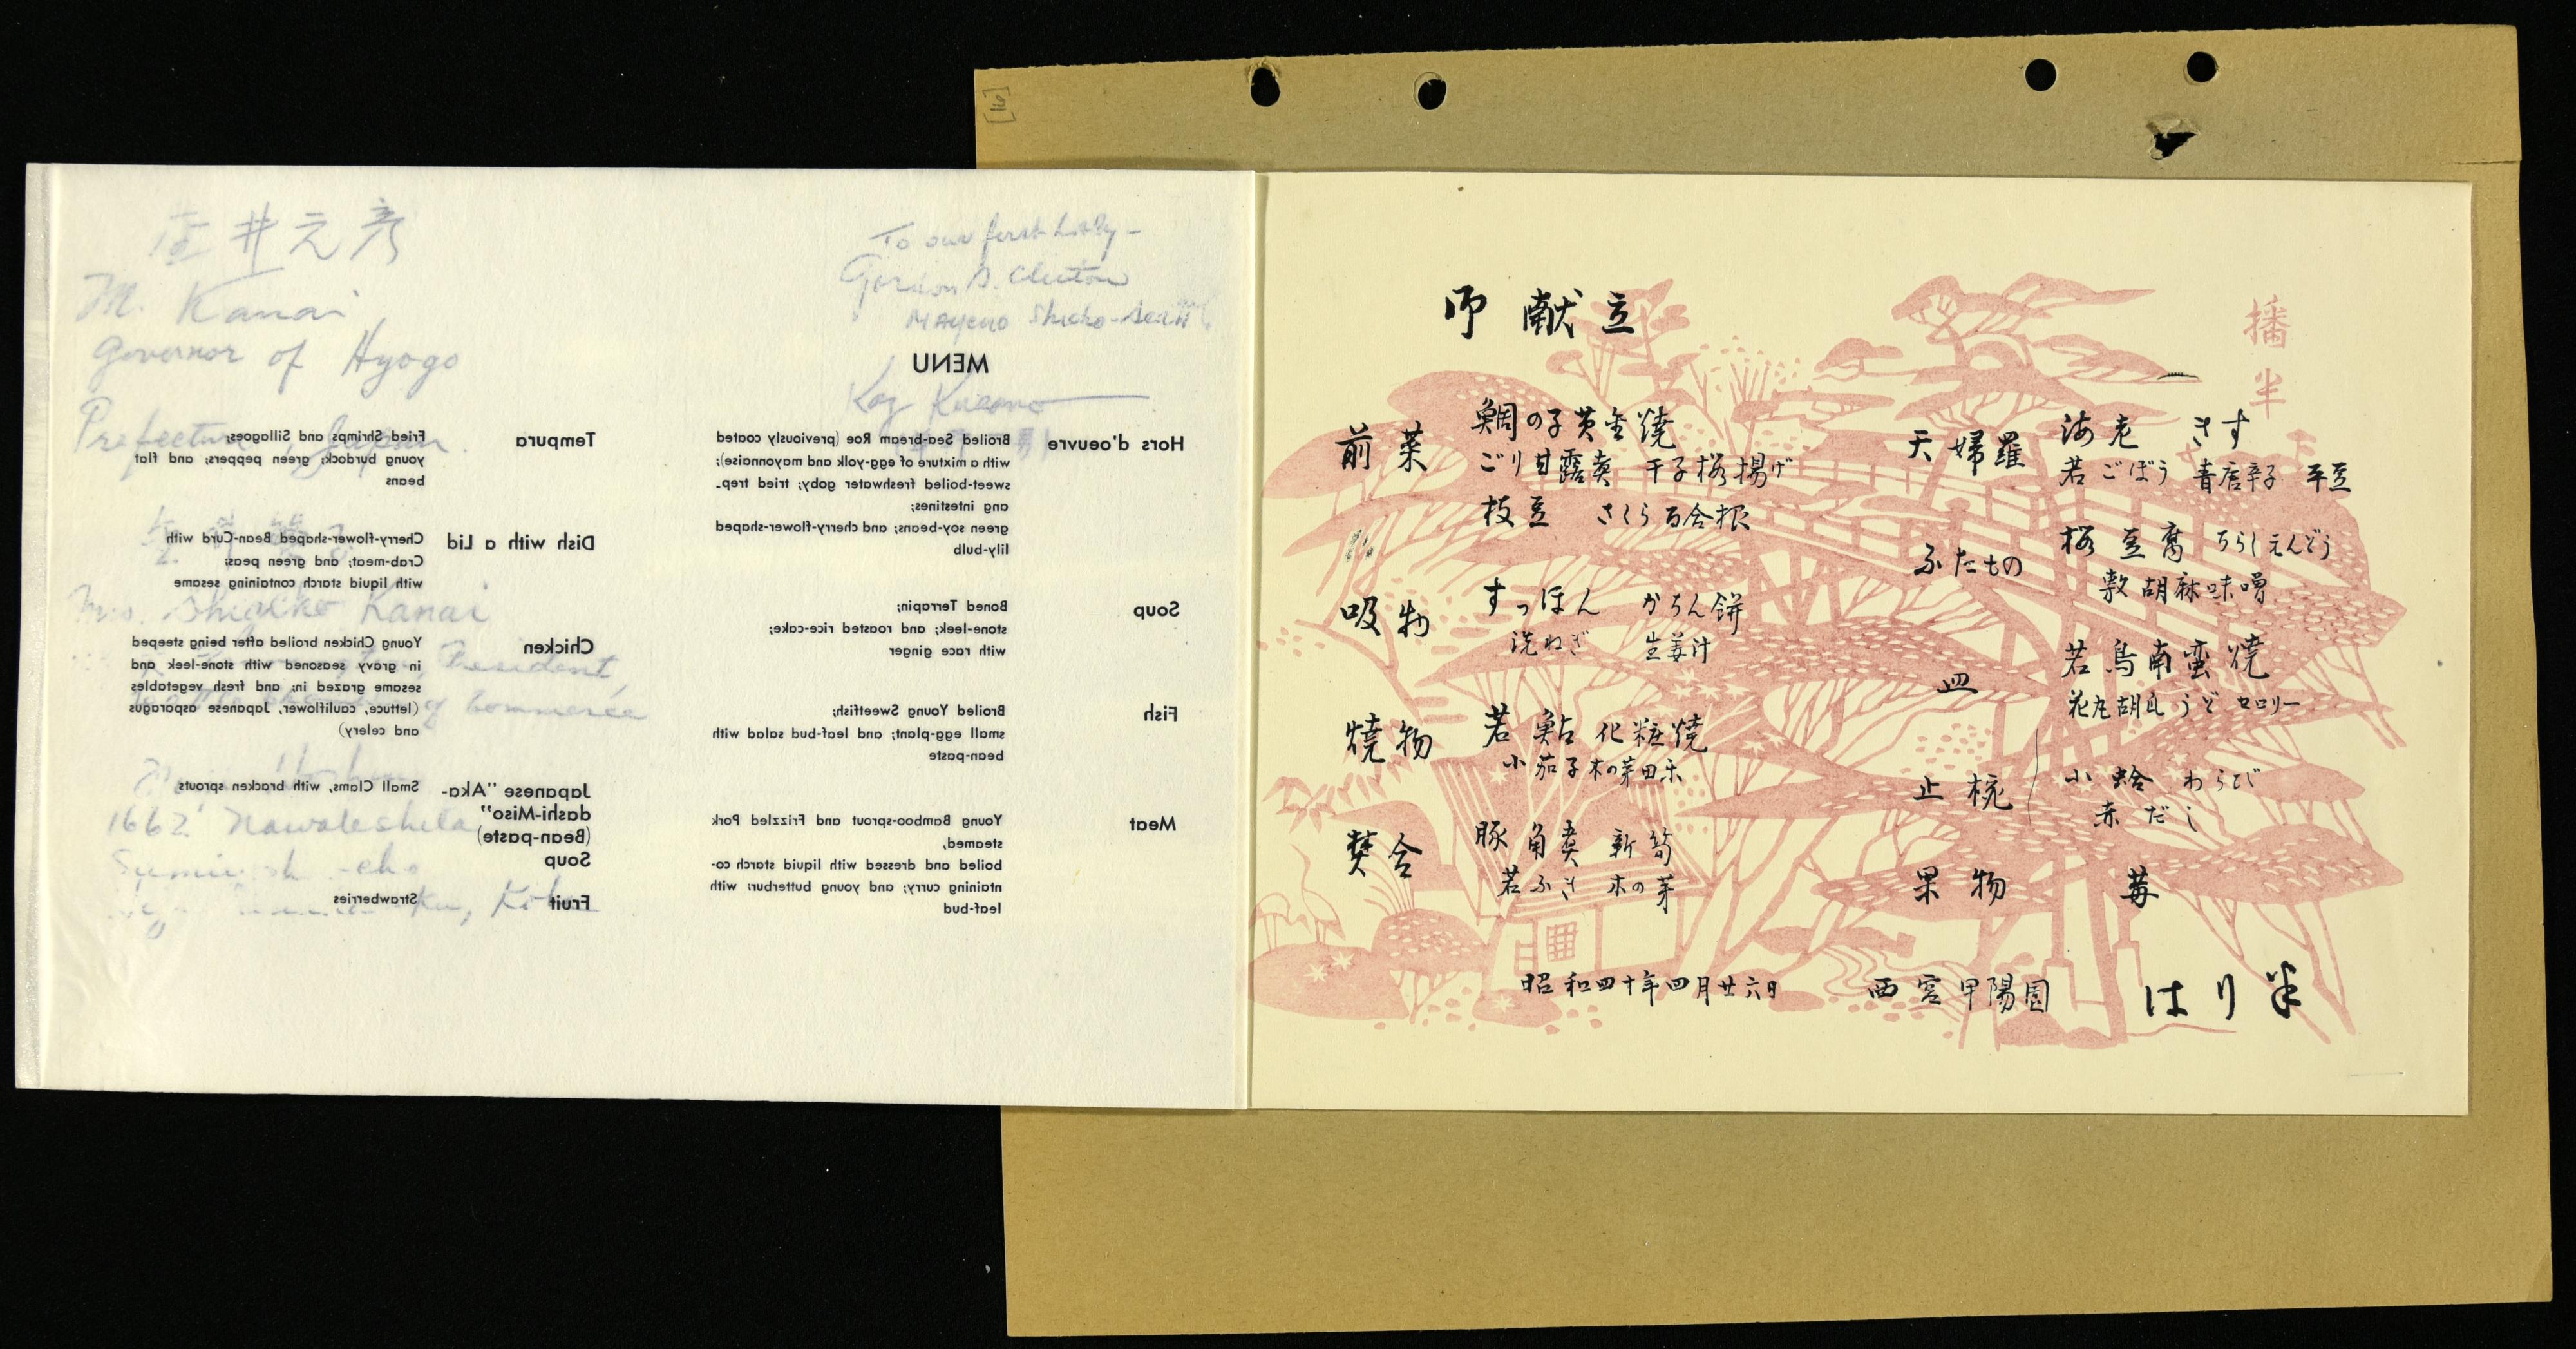 井元彦
M. Kanai
Governor of Hyogo
Prefecture, Japan.
Mrs. Shigeko Kanai
President,
of Commerce
1662
Ku, Kobe
To our first Lady -
Gordon S. Clinton
Kay
MENU
Hors d'oeuvre
Broiled Sea-bream Roe (previously coated
with a mixture of egg-yolk and mayonnaise);
sweet-boiled freshwater goby; tried trep-
ang intestines;
green soy-beans; and cherry-flower-shaped
lily-bulb
Soup
Boned Terrapin;
stone-leek; and roasted rice-cake;
with race ginger
Fish
Broiled Young Sweetfish;
small egg-plant; and leaf-bud salad with
bean-paste
Meat
Young Bamboo-sprout and Frizzled Pork
steamed,
boiled and dressed with liquid starch co-
ntaining curry; and young butterbur; with
leaf-bud
Tempura
Fried Shrimps and Sillagoes;
young burdock; green peppers; and flat
beans
Dish with a Lid
Cherry-flower-shaped Bean-Curd with
Crab-meat; and green peas;
with liquid starch containing sesame
Chicken
Young Chicken broiled after being steeped
in gravy seasoned with stone-leek and
sesame grazed in; and fresh vegetables
(lettuce, cauliflower, Japanese asparagus
and celery)
Japanese "Aka-
dashi-Miso"
(Bean-paste)
Soup
Small Clams, with bracken sprouts
Fruit
Strawberries
播半
御献立
前菜
鯛の子黄金焼
ごり甘露煮 干子桜揚げ
枝豆 さくら百合根
吸物
すっぽん かちん餅
洗ねぎ 生姜汁
焼物
若鮎化粧焼
小茄子木の芽田楽
焚合
豚角煮 新筍
若ふき 木の芽
天婦羅
海老 きす
若ごぼう 青唐辛子 平豆
ふたもの
桜豆腐 ちらしえんどう
敷胡麻味噌
皿
若鳥南蛮焼
花丸胡瓜 うど セロリー
止椀
小蛤 わらび
赤だし
果物
苺
昭和四十年四月廿六日
西宮甲陽園
はり半